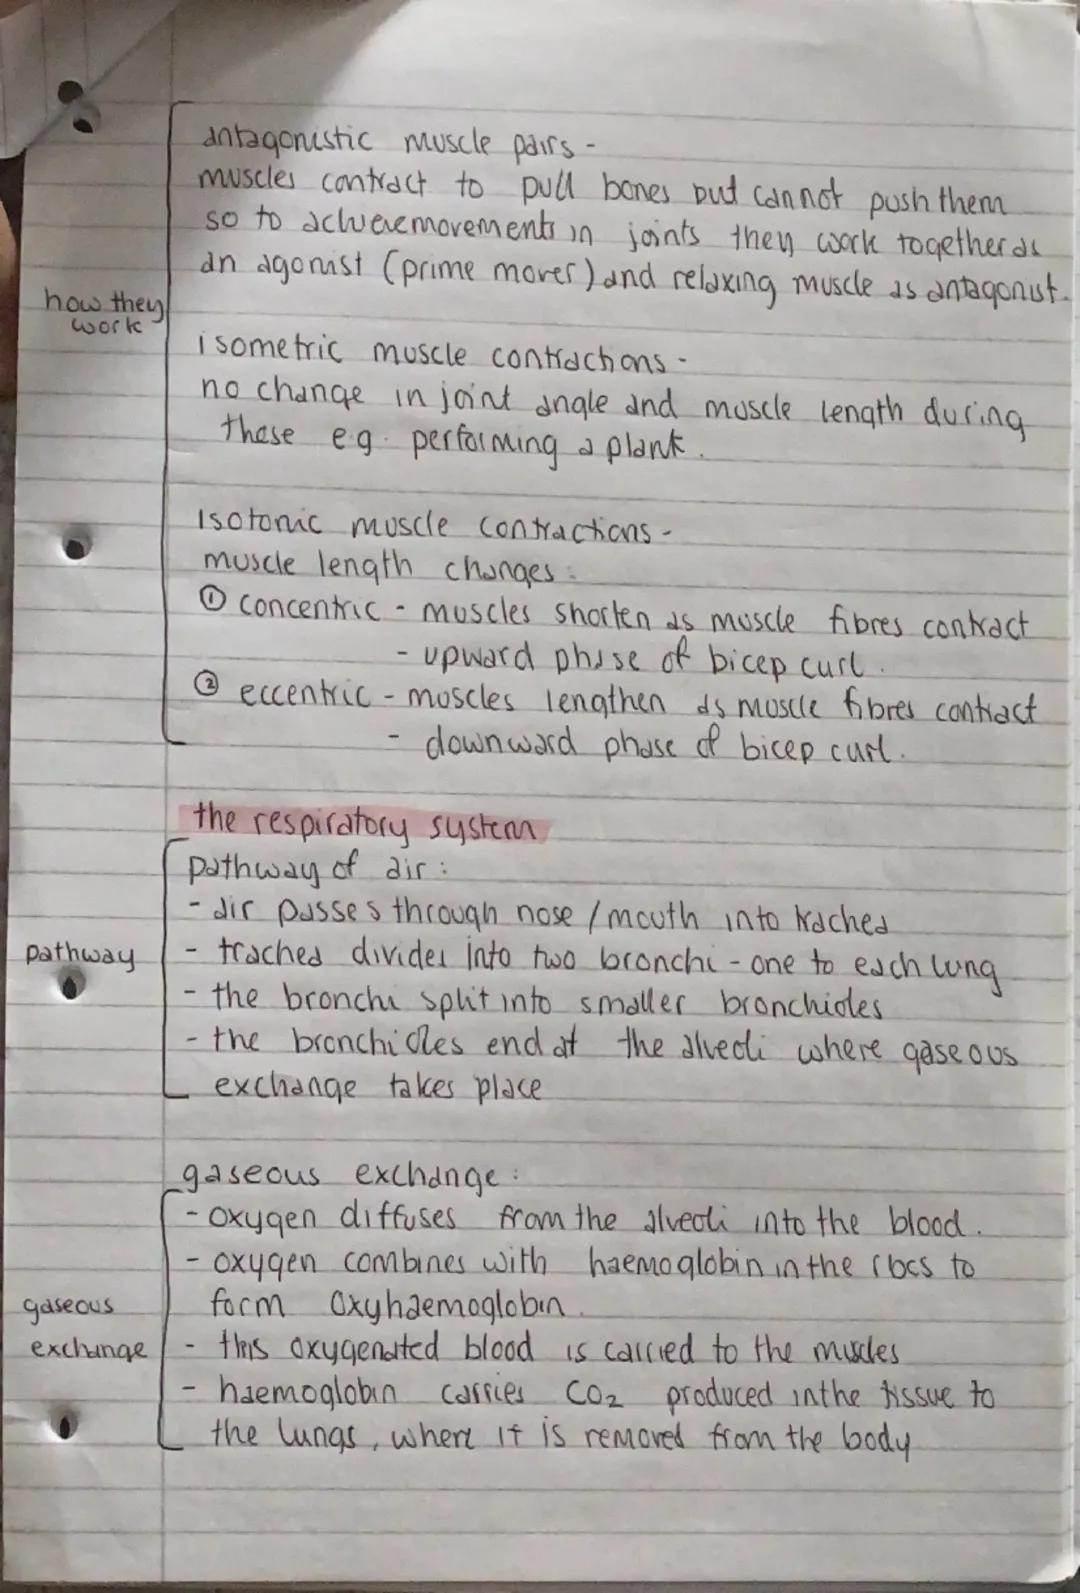 antagonistic muscle pairs -
muscles contract to pull bones but cannot push them
so to achieve movements in joints they work together as
an agonist (prime mover) and relaxing muscle as antagonist.
how they
work
isometric muscle contractions -
no change in joint angle and muscle length during
these e.g. performing a plank.
Isotonic muscle contractions -
muscle length changes:
① concentric - muscles shorten as muscle fibres contract
- upward phase of bicep curl.
② eccentric - muscles lengthen as muscle fibres contract
- downward phase of bicep curl.
the respiratory system
pathway of air:
- air passes through nose/mouth into trachea
pathway
- trachea divides into two bronchi - one to each lung
- the bronchi split into smaller bronchioles
- the bronchioles end at the alveoli where gaseous
exchange takes place
gaseous exchange:
- oxygen diffuses from the alveoli into the blood.
- oxygen combines with haemoglobin in the rbcs to
form oxyhaemoglobin.
gaseous
exchange
- this oxygenated blood is carried to the muscles
- haemoglobin carries CO₂ produced in the tissue to
the lungs, where it is removed from the body